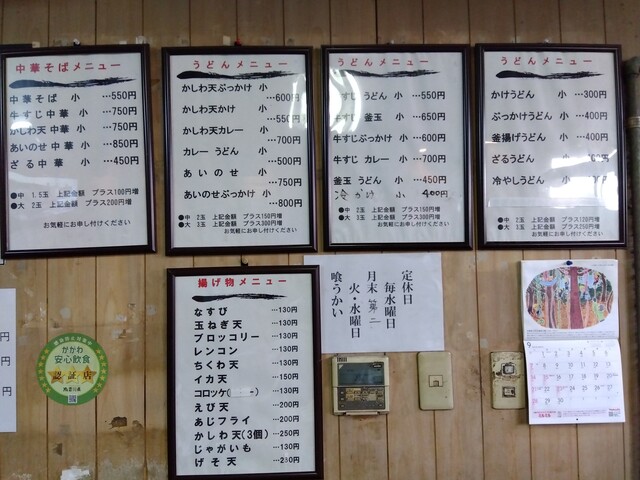 中華そばメニュー
中華そば 小 …550円
牛すじ中華 小 …750円
かしわ天中華 小 …750円
あいのせ中華 小 …850円
ざる中華 小 …450円
●中 1.5玉 上記金額 プラス100円増
●大 2玉 上記金額 プラス200円増
お気軽にお申し付けください
うどんメニュー
かしわ天ぶっかけ 小
…600円
かしわ天かけ 小
…550円
かしわ天カレー 小
…700円
カレーうどん 小
…500円
あいのせ 小
…750円
あいのせぶっかけ 小
…800円
●中 2玉 上記金額 プラス150円増
●大 3玉 上記金額 プラス300円増
お気軽にお申し付けください
うどんメニュー
牛すじうどん 小 …550円
牛すじ釜玉 小 …650円
牛すじぶっかけ 小 …600円
牛すじカレー 小 …700円
釜玉うどん 小 …450円
冷かけ 小 400円
●中 2玉 上記金額 プラス150円増
●大 3玉 上記金額 プラス300円増
お気軽にお申し付けください
うどんメニュー
かけうどん 小 …300円
ぶっかけうどん 小 …400円
釜揚げうどん 小 …400円
ざるうどん 小
冷やしうどん 小
●中 2玉 上記金額 プラス120円増
●大 3玉 上記金額 プラス250円増
お気軽にお申し付けください
円
円
円
かがわ
安心飲食
認証店
揚げ物メニュー
なすび …130円
玉ねぎ天 …130円
ブロッコリー …130円
レンコン …130円
ちくわ天 …130円
イカ天 …150円
コロッケ( ) …130円
えび天 …200円
あじフライ …200円
かしわ天(3個) …250円
じゃがいも …130円
げそ天 …230円
定休日
毎水曜日
月末 第二
火・水曜日
喰うかい
9